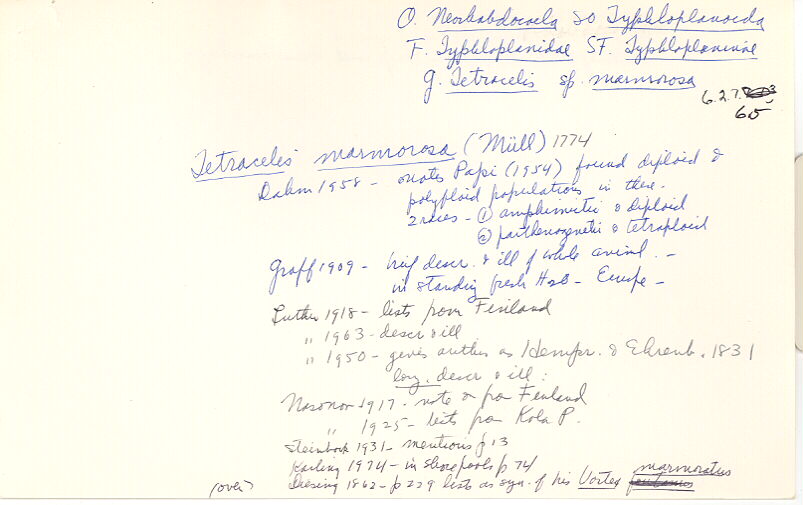 O. Neorhabdocoela SO Typhloplanoida
F. Typhloplanidae SF. Typhloplaninae
g. Tetracelis sp. marmorosa
6.2.7.
65
Tetracelis marmorosa (Müll) 1774
Dahm 1958 - notes Papi (1954) found diploid &
polyploid populations in these.
2 races - ① amphimictic & diploid
② parthenogenetic & tetraploid
Graff 1909 - brief descr. & ill of whole animal. -
in standing fresh H20 - Europe -
Luther 1918 - lists from Finland
" 1963 - descr & ill
" 1950 - gives author as Hempr. & Ehrenb. 1831
long. descr & ill:
Nasonov 1917 - note on from Finland
" 1925 - lists from Kola P.
Steinbock 1931 - mentions p 13
Karling 1974 - in shore pools p 74
(over) Diesing 1862 - p 229 lists as syn. of his Vortex marmoratus